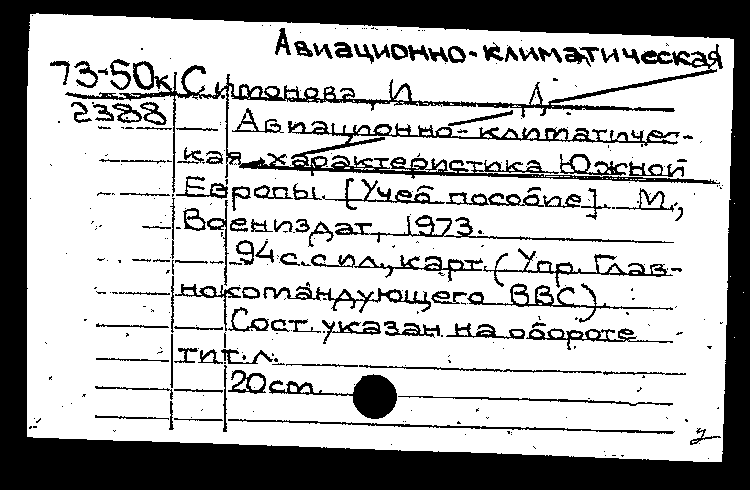 Авиационно-климатическая
73-50к
2388
Симонова, И. Д.
Авиационно-климатичес-
кая характеристика Южной
Европы. [Учеб пособие]. М.,
Воениздат, 1973.
94 с. с ил., карт. (Упр. Глав-
нокомандующего ВВС).
Сост. указан на обороте
тит. л.
20 cm.